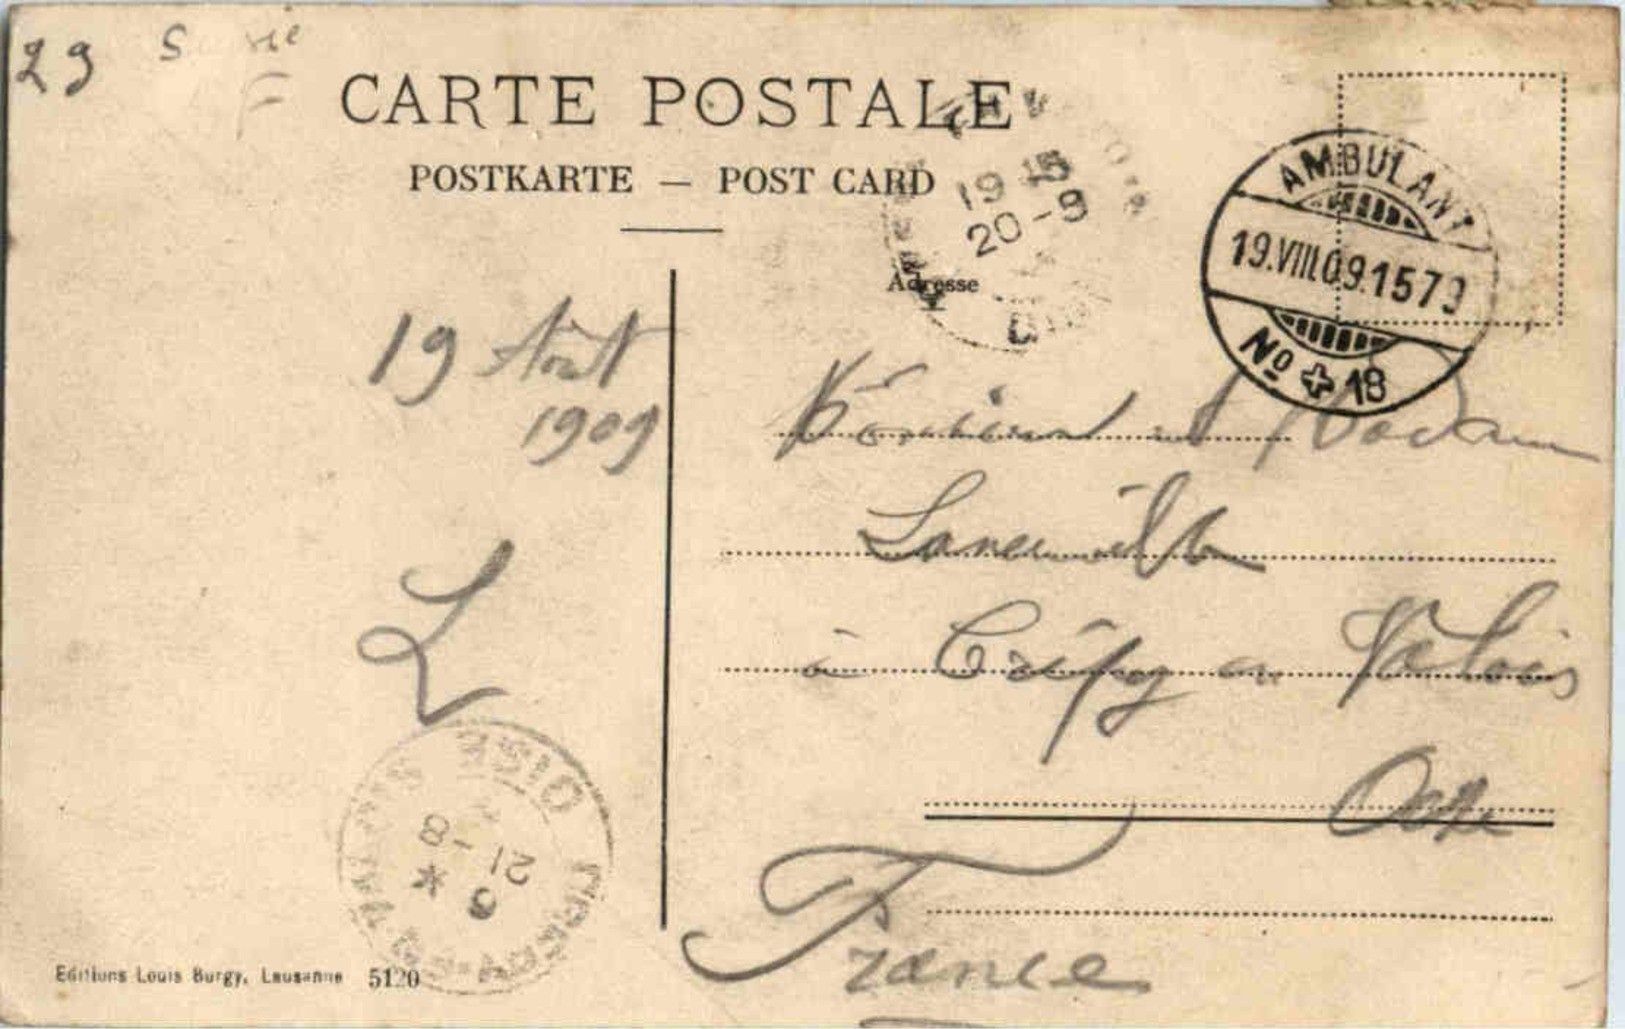 29
CARTE POSTALE
POSTKARTE — POST CARD
19 15
20 - 8
Adresse
AMBULANT
19.VIII.09.1579
No 18
19 Août
1909
Monsieur et Madame
à Crépy en Valois
Oise
France
L
OISE
21 - 8
9
Editions Louis Burgy, Lausanne 5120